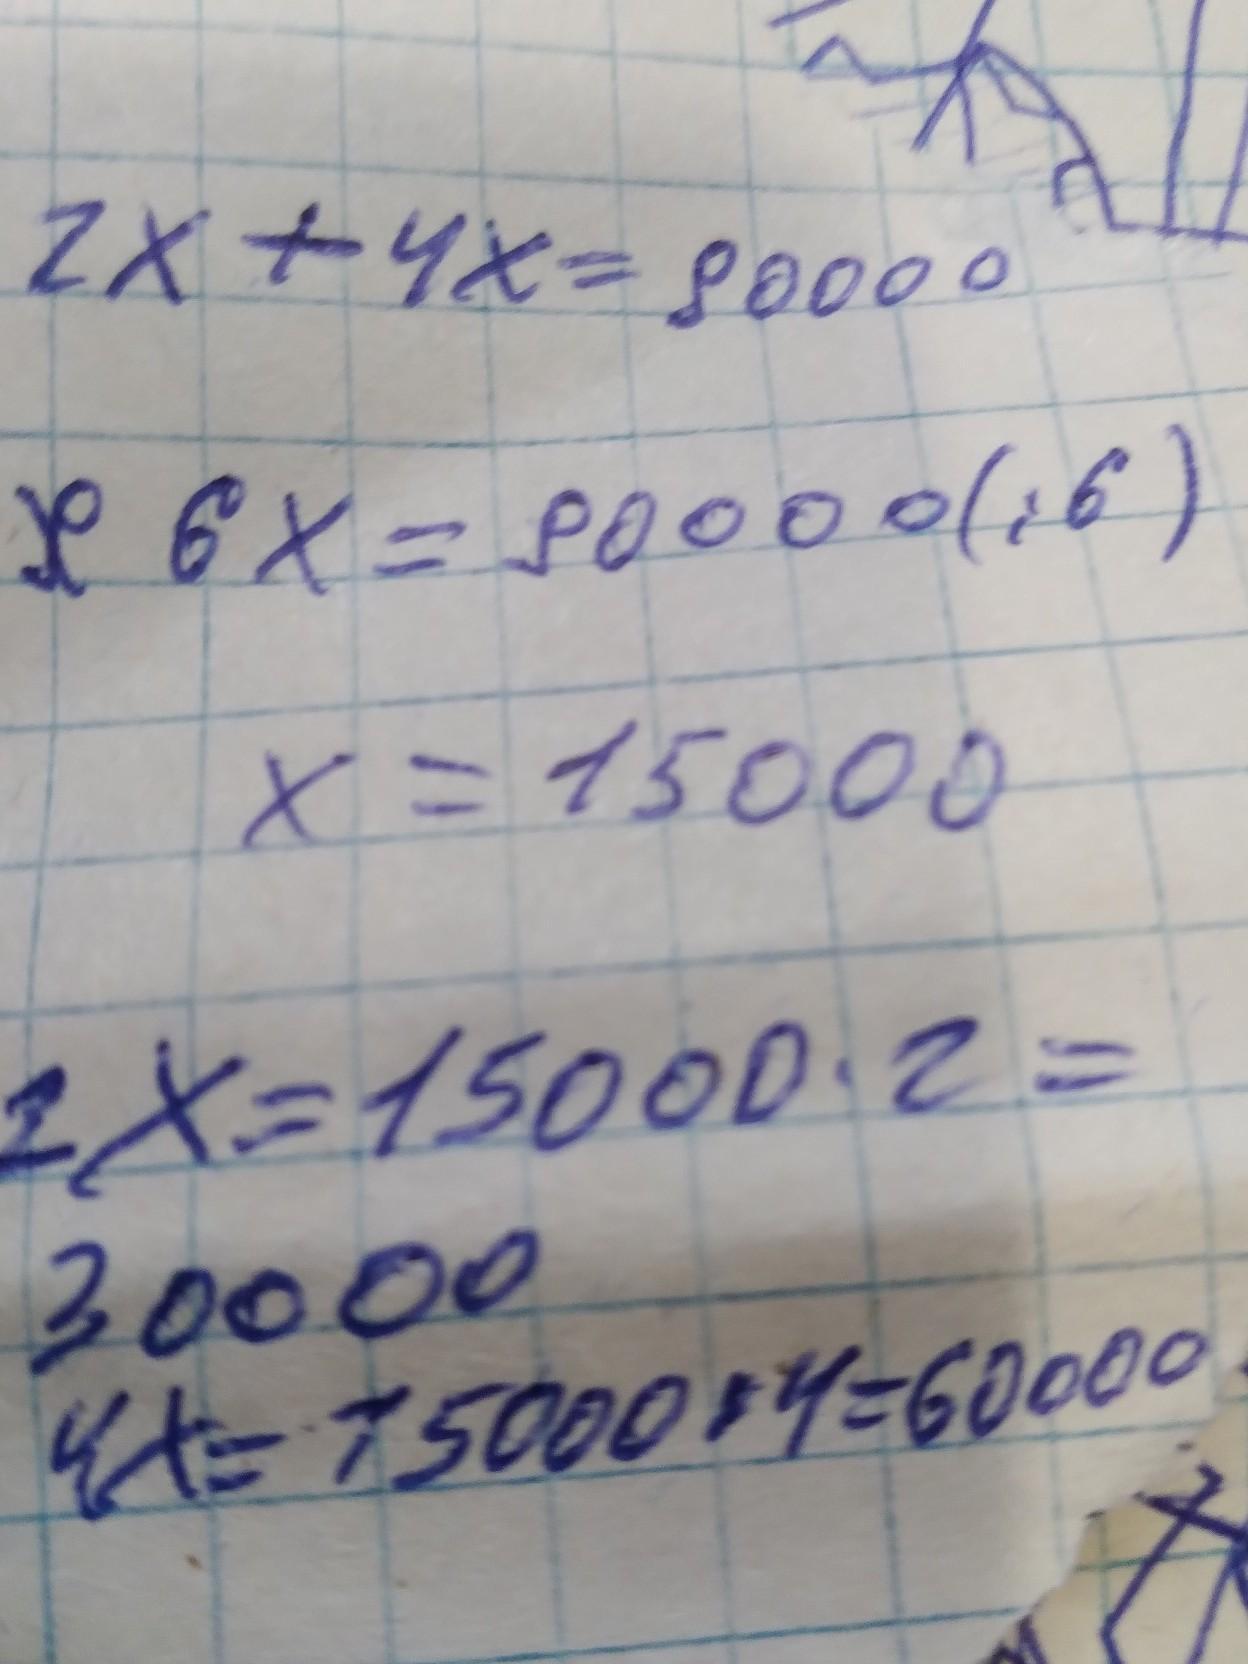 2x + 4x = 90000
6x = 90000 (:6)
x = 15000
2x = 15000 · 2 =
30000
4x = 15000 · 4 = 60000